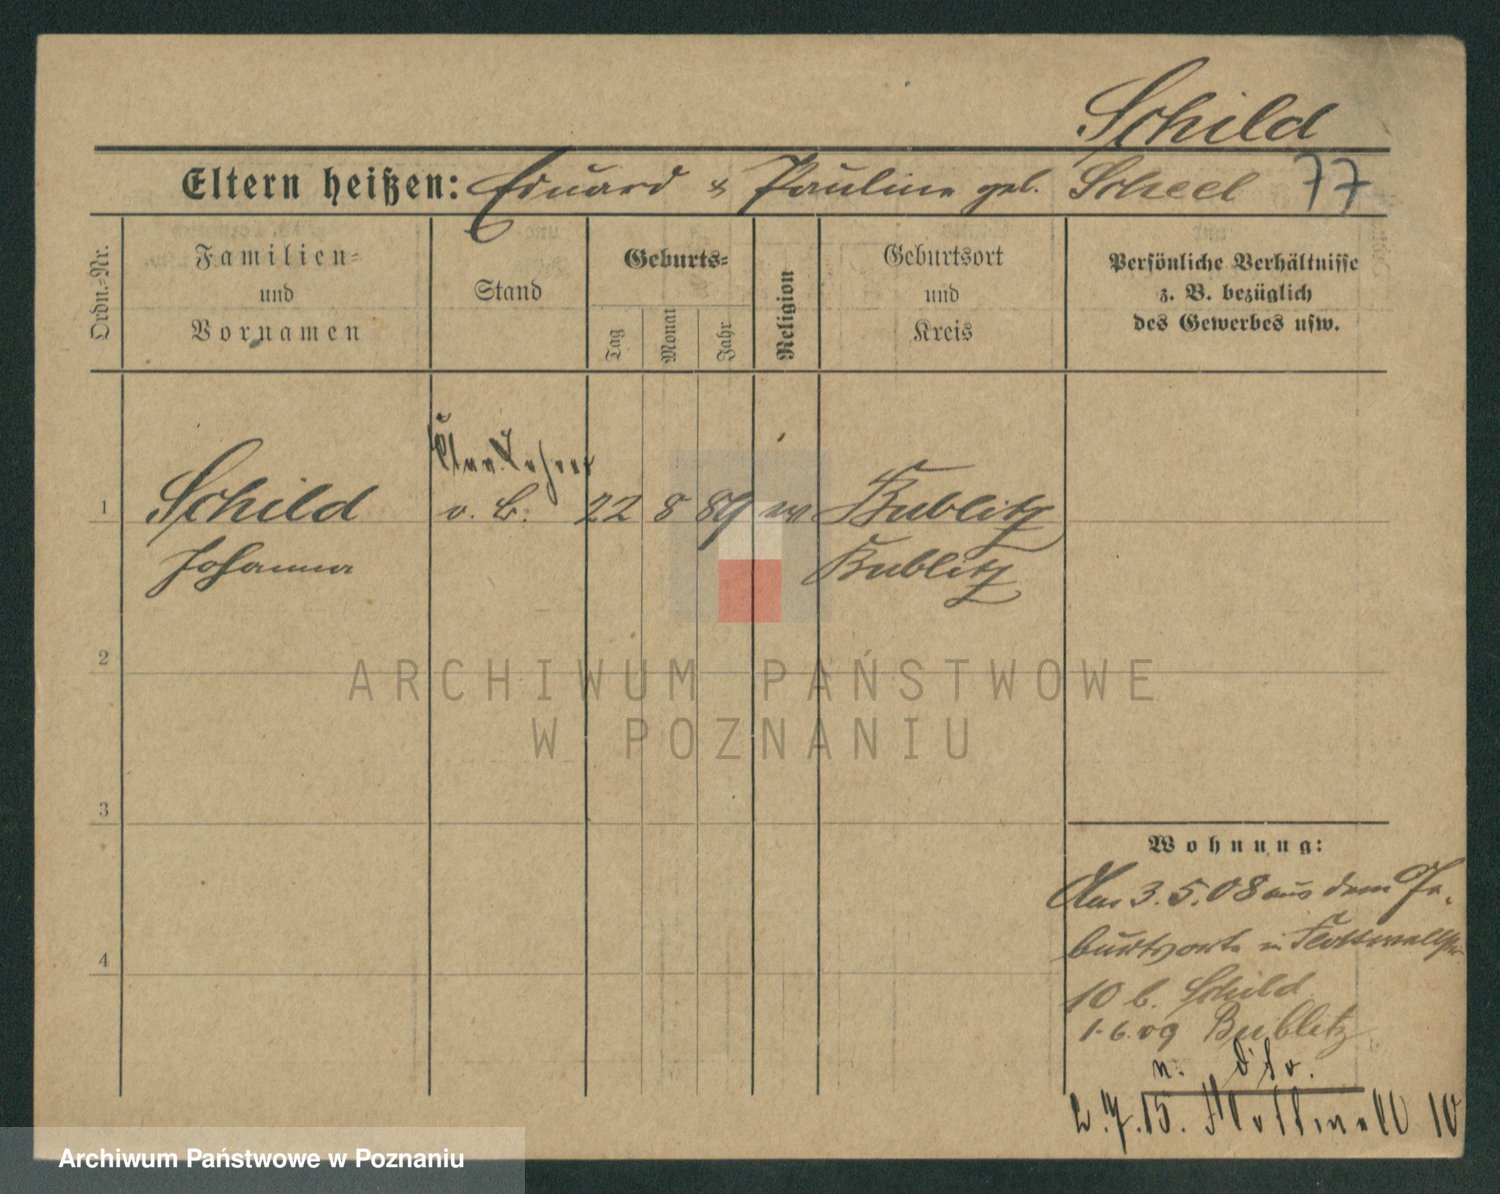 Schild
Eltern heißen: Eduard & Pauline geb. Scheel 77
Ordn.-Nr.
Familien-
und
Vornamen
Stand
Geburts-
Tag
Monat
Jahr
Religion
Geburtsort
und
Kreis
Persönliche Verhältnisse
z. B. bezüglich
des Gewerbes usw.
1 Schild o. B. 22 8 89 ev Bublitz
Johanna Bublitz
2
3
4
ARCHIWUM PAŃSTWOWE
W POZNANIU
Wohnung:
Am 3.5.08 aus dem Ge-
burtsorte n Flottwellstr
10 b. Schild
1.6.09 Bublitz
n. dto.
2.7.15. Flottwell 10
Archiwum Państwowe w Poznaniu